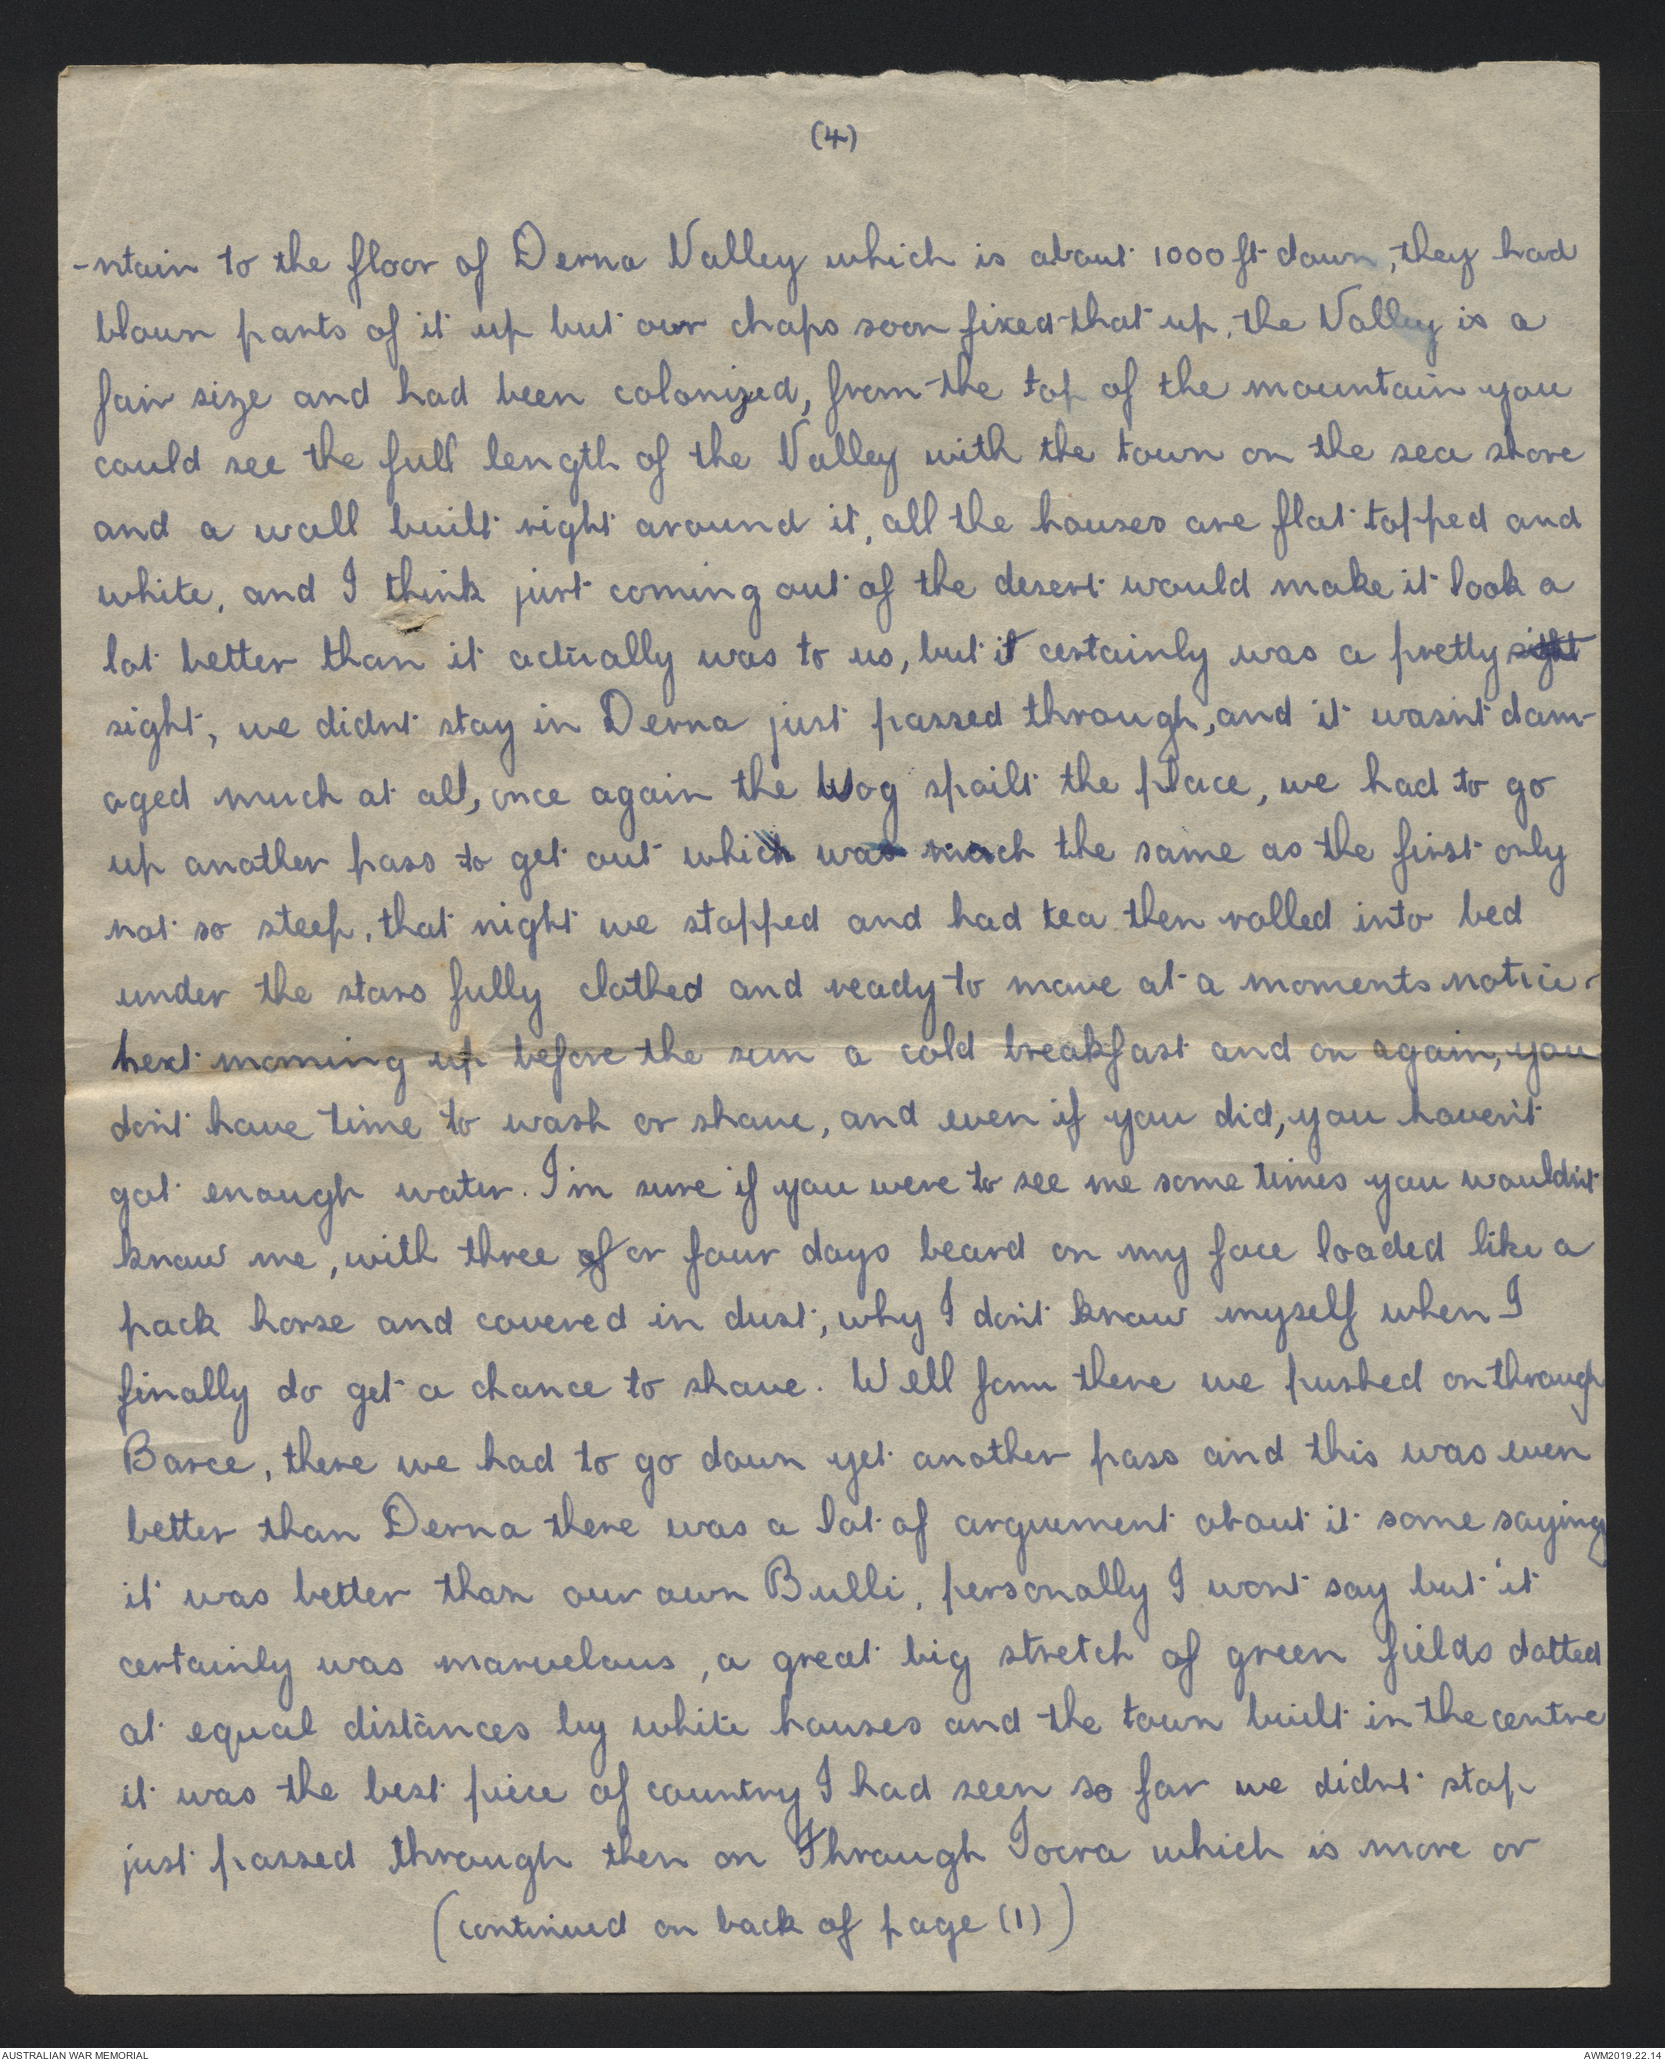 (4)
-ntain to the floor of Derna Valley which is about 1000 ft down, they had
blown parts of it up but our chaps soon fixed that up, the Valley is a
fair size and had been colonized, from the top of the mountain you
could see the full length of the Valley with the town on the sea shore
and a wall built right around it, all the houses are flat topped and
white, and I think just coming out of the desert would make it look a
lot better than it actually was to us, but it certainly was a pretty sight
sight, we didnt stay in Derna just passed through, and it wasn't dam-
aged much at all, once again the Wog spoilt the place, we had to go
up another pass to get out which was much the same as the first only
not so steep, that night we stopped and had tea then rolled into bed
under the stars fully clothed and ready to move at a moments notice.
next morning up before the sun a cold breakfast and on again, you
don't have time to wash or shave, and even if you did, you haven't
got enough water. I'm sure if you were to see me some times you wouldn't
know me, with three of or four days beard on my face loaded like a
pack horse and covered in dust, why I don't know myself when I
finally do get a chance to shave. Well fom there we pushed on through
Barce, there we had to go down yet another pass and this was even
better than Derna there was a lot of arguement about it some saying
it was better than our own Bulli, personally I wont say but it
certainly was marvelous, a great big stretch of green fields dotted
at equal distances by white houses and the town built in the centre
it was the best piece of country I had seen so far we didnt stop
just passed through then on Through Tocra which is more or
(continued on back of page (1))
AUSTRALIAN WAR MEMORIAL
AWM2019.22.14